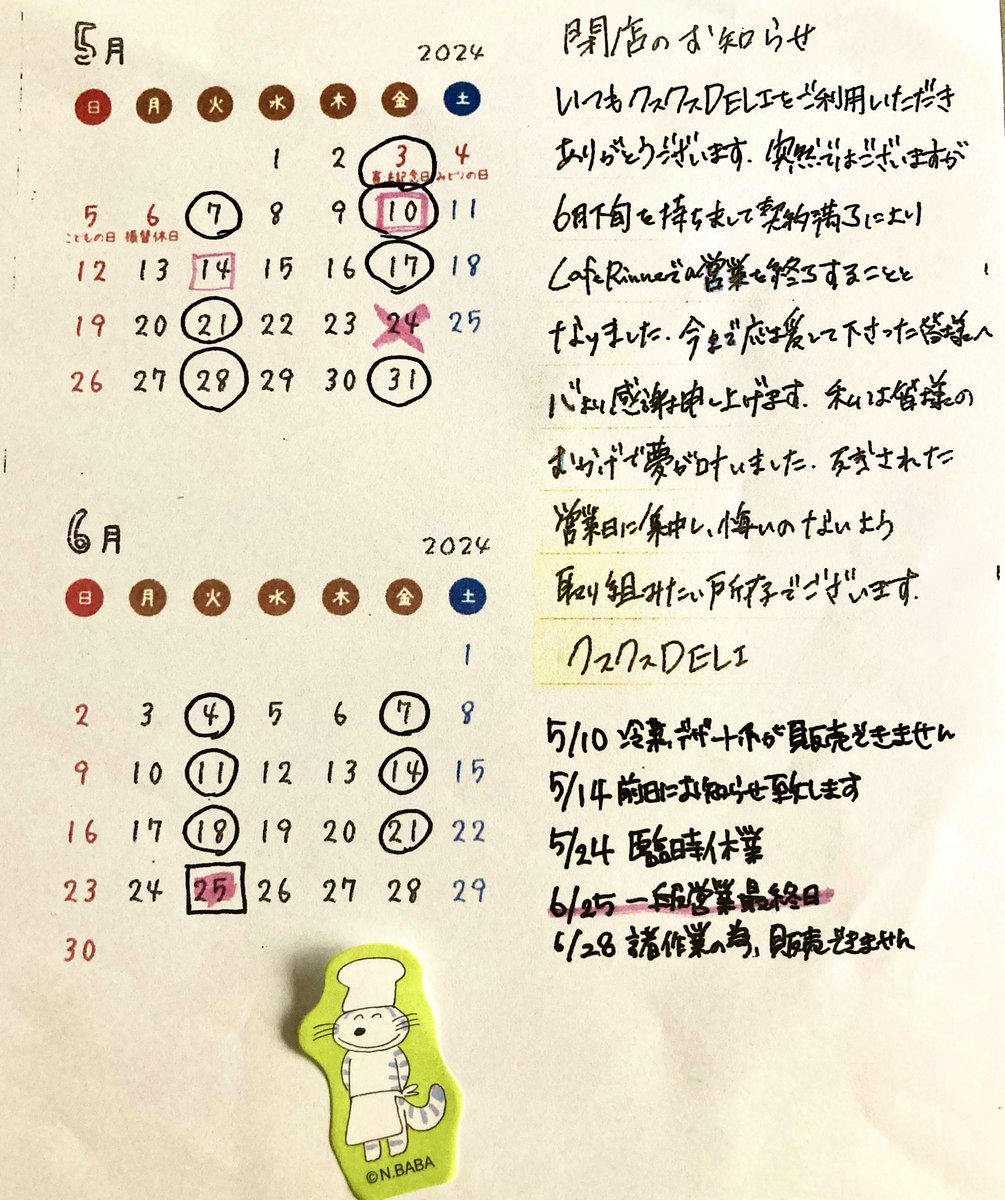 5月 2024
日 月 火 水 木 金 土
1 2 3 4
憲法記念日 みどりの日
5 6 7 8 9 10 11
こどもの日 振替休日
12 13 14 15 16 17 18
19 20 21 22 23 24 25
26 27 28 29 30 31
6月 2024
日 月 火 水 木 金 土
1
2 3 4 5 6 7 8
9 10 11 12 13 14 15
16 17 18 19 20 21 22
23 24 25 26 27 28 29
30
©N.BABA
閉店のお知らせ
いつもクスクスDELIをご利用いただき
ありがとうございます.突然ではございますが
6月下旬を持ちまして契約満了により
Cafe Rinneでの営業を終了することと
なりました.今まで応援して下さった皆様へ
心より感謝申し上げます.私は皆様の
おかげで夢が叶いました.残された
営業日に集中し、悔いのないよう
取り組みたい所存でございます.
クスクスDELI
5/10 冷菓、デザートが販売できません
5/14 前日にお知らせ致します
5/24 臨時休業
6/25 一般営業最終日
6/28 諸作業の為、販売できません